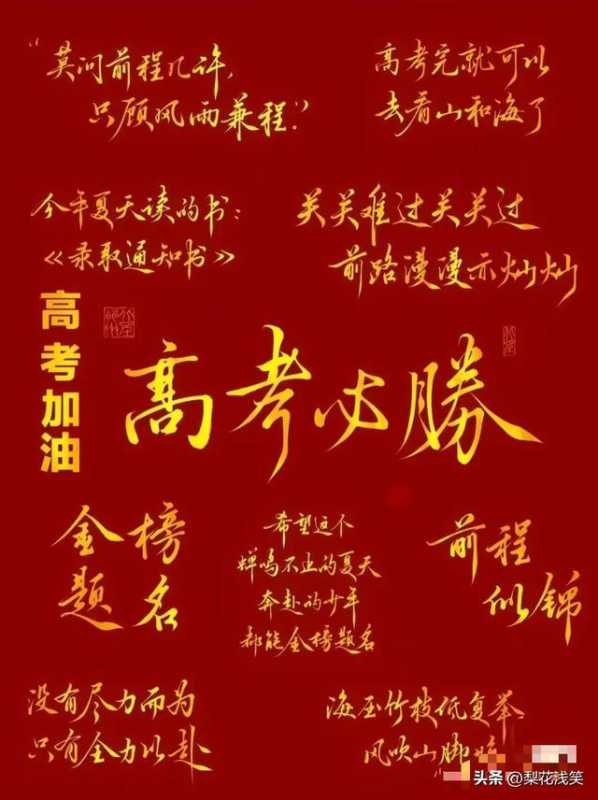 “莫问前程几许,
只顾风雨兼程.”
高考完就可以
去看山和海了
今年夏天读的书:
《录取通知书》
关关难过关关过
前路漫漫亦灿灿
高考加油
高考必勝
金榜
题名
希望这个
蝉鸣不止的夏天
奔赴的少年
都能金榜题名
前程
似锦
没有尽力而为
只有全力以赴
海压竹枝低复举,
风吹山脚
头条 @梨花浅笑